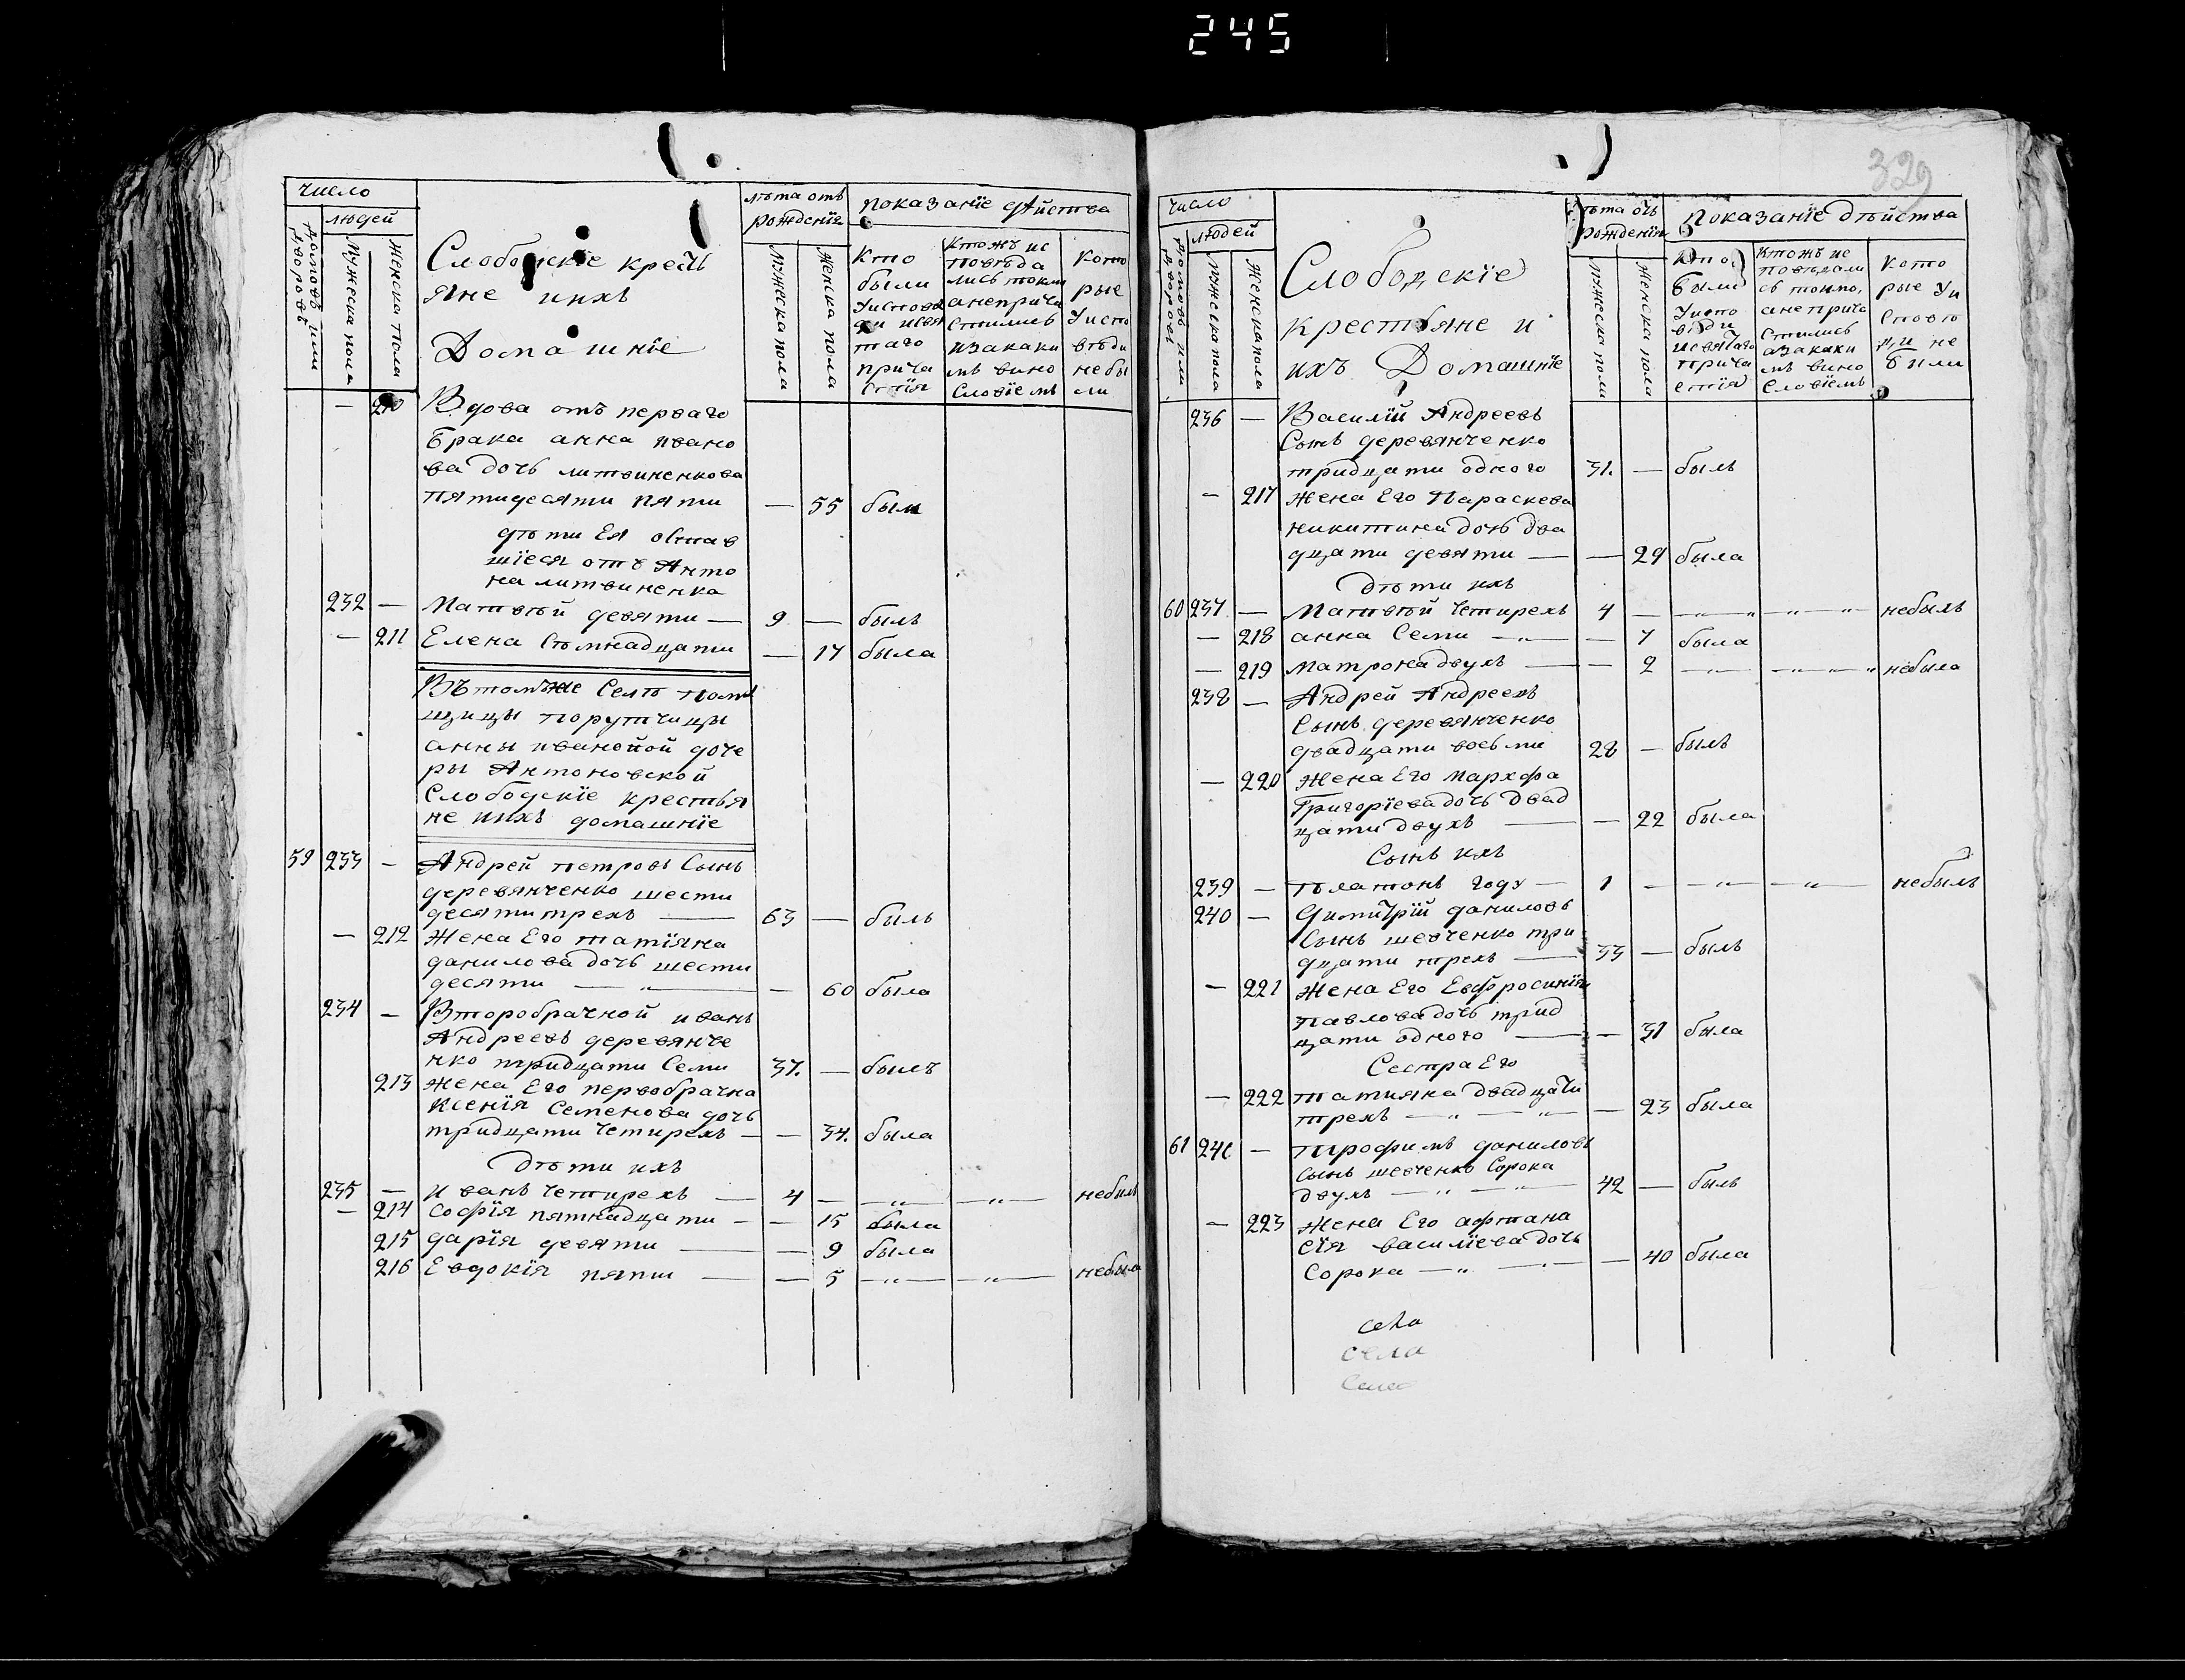 245
число
людей
домовъ или дворовъ
мужеска пола
женска пола
Слободскіе кресть
яне ихъ
Домашніе
лѣта отъ
рожденія
мужеска пола
женска пола
показаніе дѣйства
Кто
были
Уиспове
ди исвя
таго
прича
стія
Ктожъ ис
повѣда
лись токм
анепріча
стились
изакаки
мъ вино
словіемъ
Кото
рые
Уиспо
вѣди
небы
ли
— 210 Вдова отъ перваго
брака анна ивано
ва дочь литвиненкова
пятидесяти пяти — 55 была
дѣти Ея остав
шіеся отъ Анто
на литвиненка
232 — Матвѣй девяти — 9 — былъ
— 211 Елена Семнадцати — 17 была
Въ томъже Селѣ поме
щицы порутчицы
анны ивановой доче
ры Антоновской
Слободскіе крестья
не ихъ домашніе
59 233 — Андрей петровъ Сынъ
деревянченко шести
десяти трехъ — 63 — былъ
— 212 Жена Его татіяна
данилова дочь шести
десяти — „ — — 60 была
234 — Второбрачной иванъ
Андреевъ деревянче
нко тридцати Семи 37. — былъ
213 Жена Его первобрачна
Ксенія Семенова дочь
тридцати четирехъ — — 34. была
Дѣти ихъ
235 — Иванъ четирехъ — 4 — — „ — — „ — небылъ
— 214 Софія пятнадцати — — 15 была
215 дарія девяти — — 9 была
216 Евдокія пяти — — 5 — „ — — „ — небыла
329
число
людей
домовъ или дворовъ
мужеска пола
женска пола
Слободскіе
крестьяне и
ихъ Домашніе
лѣта отъ
рожденія
мужеска пола
женска пола
Показаніе дѣйства
Кто
были
Уиспо
вѣди
исвятаго
прича
стія
Ктожъ ис
повѣдали
сь токмо,
анеприча
стились
азакаки
мъ вино
словіемъ
Кото
рые Уи
сповѣ
ди не
были
236 — Василій Андреевъ
Сынъ деревянченко
тридцати одного 31. — былъ
— 217 Жена Его Параскева
никитина дочь два
дцати девяти — — 29 была
Дѣти ихъ
60 237 — Матвѣй четирехъ 4 — — „ — „ — небылъ
— 218 анна Семи — „ — — 7 была
— 219 матрона двухъ — — 2 — „ — — „ небыла
238 — Андрей Андреевъ
Сынъ деревянченко
двадцати восьми 28 — былъ
— 220 Жена Его Мархфа
Григоріева дочь двад
цати двухъ — — 22 была
Сынъ ихъ
239 — платонъ году — 1 — — „ — — „ — небылъ
240 — Димитрій даниловъ
Сынъ шевченко три
дцати трехъ — 33 — былъ
— 221 Жена Его Евфросинія
павлова дочь трид
цати одного — — 31 была
Сестра Его
— 222 татияна двадцати
трехъ — „ — „ — — 23 была
61 241 — трофимъ даниловъ
Сынъ шевченко Сорока
двухъ — „ — „ — 42 — былъ
— 223 Жена Его афтана
сія василіева дочь
Сорока — „ — — 40 была
села
села